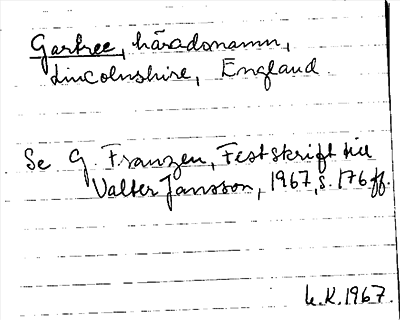 Gartree, häradsnamn,
Lincolnshire, England
Se G Franzén, Festskrift till
Valter Jansson, 1967, s. 176 ff.
L.K. 1967.